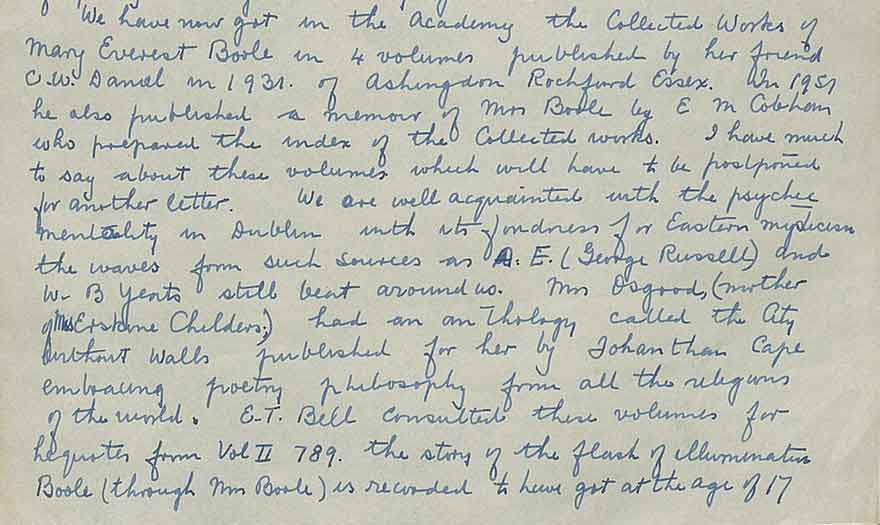 We have now got in the Academy the Collected Works of
Mary Everest Boole in 4 volumes published by her friend
C.W. Daniel in 1931. of Ashingdon Rochford Essex. In 1951
he also published a memoir of Mrs Boole by E M Cobham
who prepared the index of the Collected works. I have much
to say about these volumes which will have to be postponed
for another letter. We are well acquainted with the psychic
mentality in Dublin with its fondness for Eastern mysticism
the waves from such sources as A. E. (George Russell) and
W. B Yeats still beat around us. Mrs Osgood, (mother
of Mrs Erskine Childers,) had an anthology called the City
without Walls published for her by Johanthan Cape
embracing poetry philosophy from all the religions
of the world. E.T. Bell consulted these volumes for
he quotes from Vol II 789. the story of the flash of illumination
Boole (through Mrs Boole) is recorded to have got at the age of 17